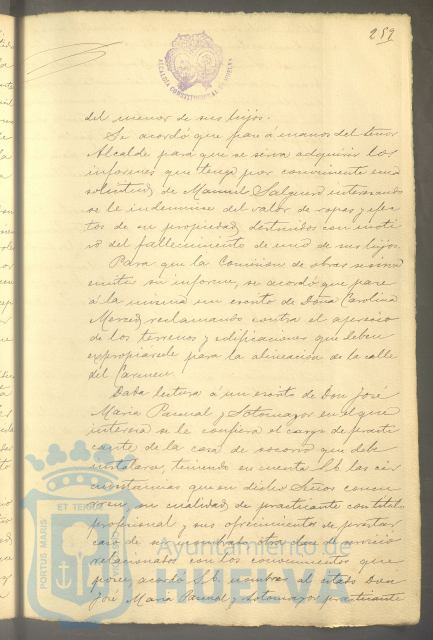 259
ALCALDIA CONSTITUCIONAL DE HUELVA
del menor de sus hijos.
Se acordó que pase á manos del Señor
Alcalde para que se sirva adquirir los
informes que tenga por conveniente una
solicitud de Manuel Salguero interesando
se le indemnice del valor de ropas y efec
tos de su propiedad destruidos con moti
vo del fallecimiento de uno de sus hijos.
Para que la Comision de obras se sirva
emitir su informe, se acordó que pase
á la misma un escrito de Doña Carolina
Merced reclamando contra el aprecio
de los terrenos y edificaciones que deben
expropiársele para la alineación de la calle
del Carmen.
Dada lectura á un escrito de Don José
Maria Pascual y Sotomayor en el que
interesa se le confiera el cargo de practi
cante de la casa de socorro que debe
instalarse, teniendo en cuenta S.E. las cir
cunstancias que en dicho Señor concu
rren, su cualidad de practicante con titulo
profesional y sus ofrecimientos de prestar
caso de ser nombrado otra clase de servicio
relacionados con los conocimientos que
posee, acordó S.E. nombrar al citado Don
José Maria Pascual y Sotomayor practicante
PORTUS MARIS
ET TERRÆ
Ayuntamiento de
HUELVA